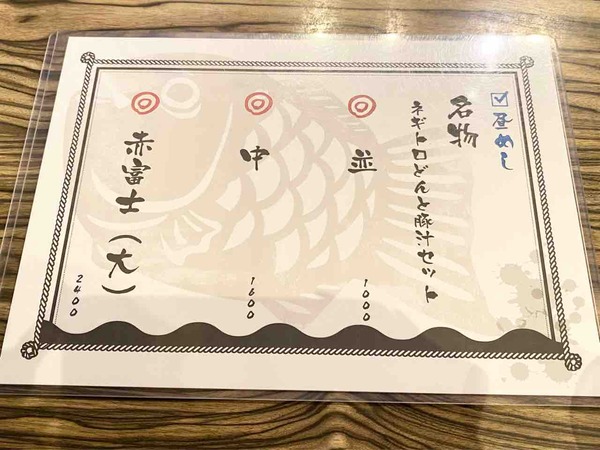 昼めし
名物
ネギトロどんと豚汁セット
並 1000
中 1600
赤富士(大) 2400